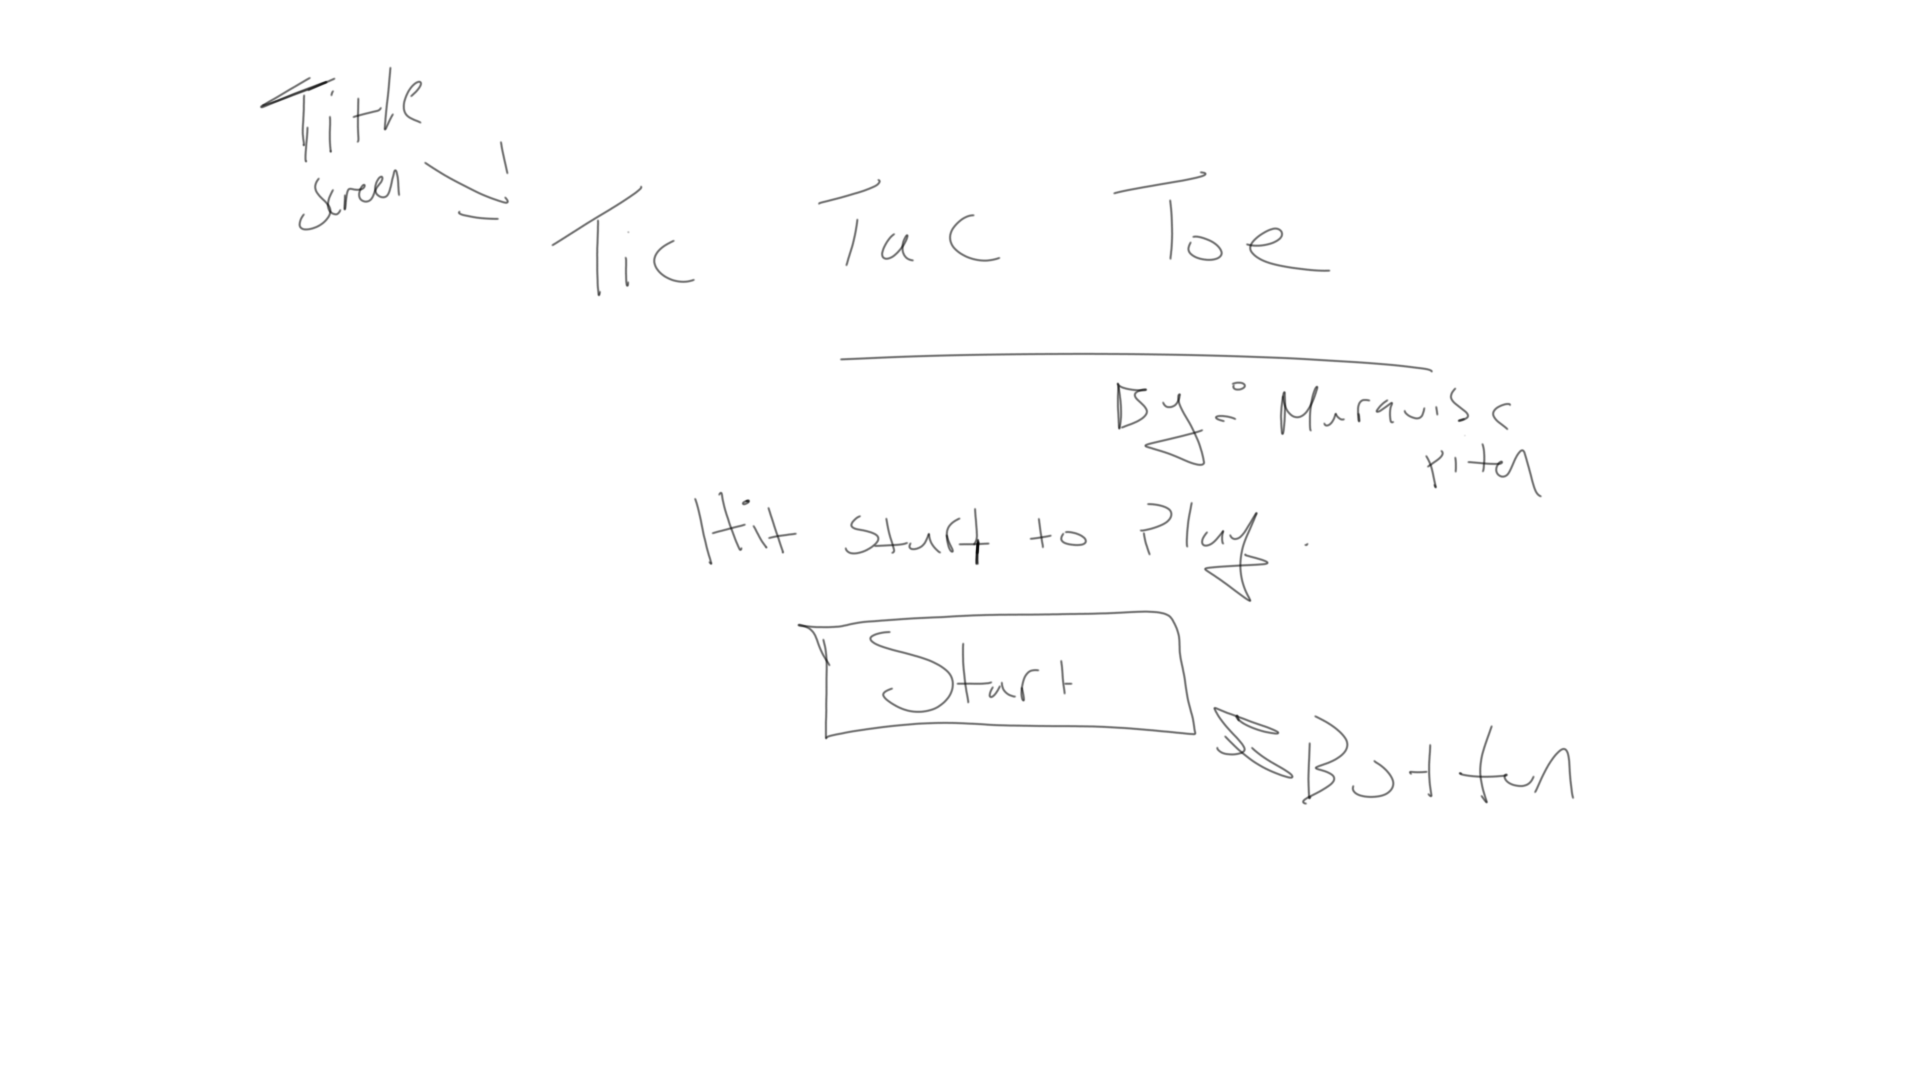 Title
screen
Tic Tac Toe
By: Marquis
Hit start to Play.
Start
Button